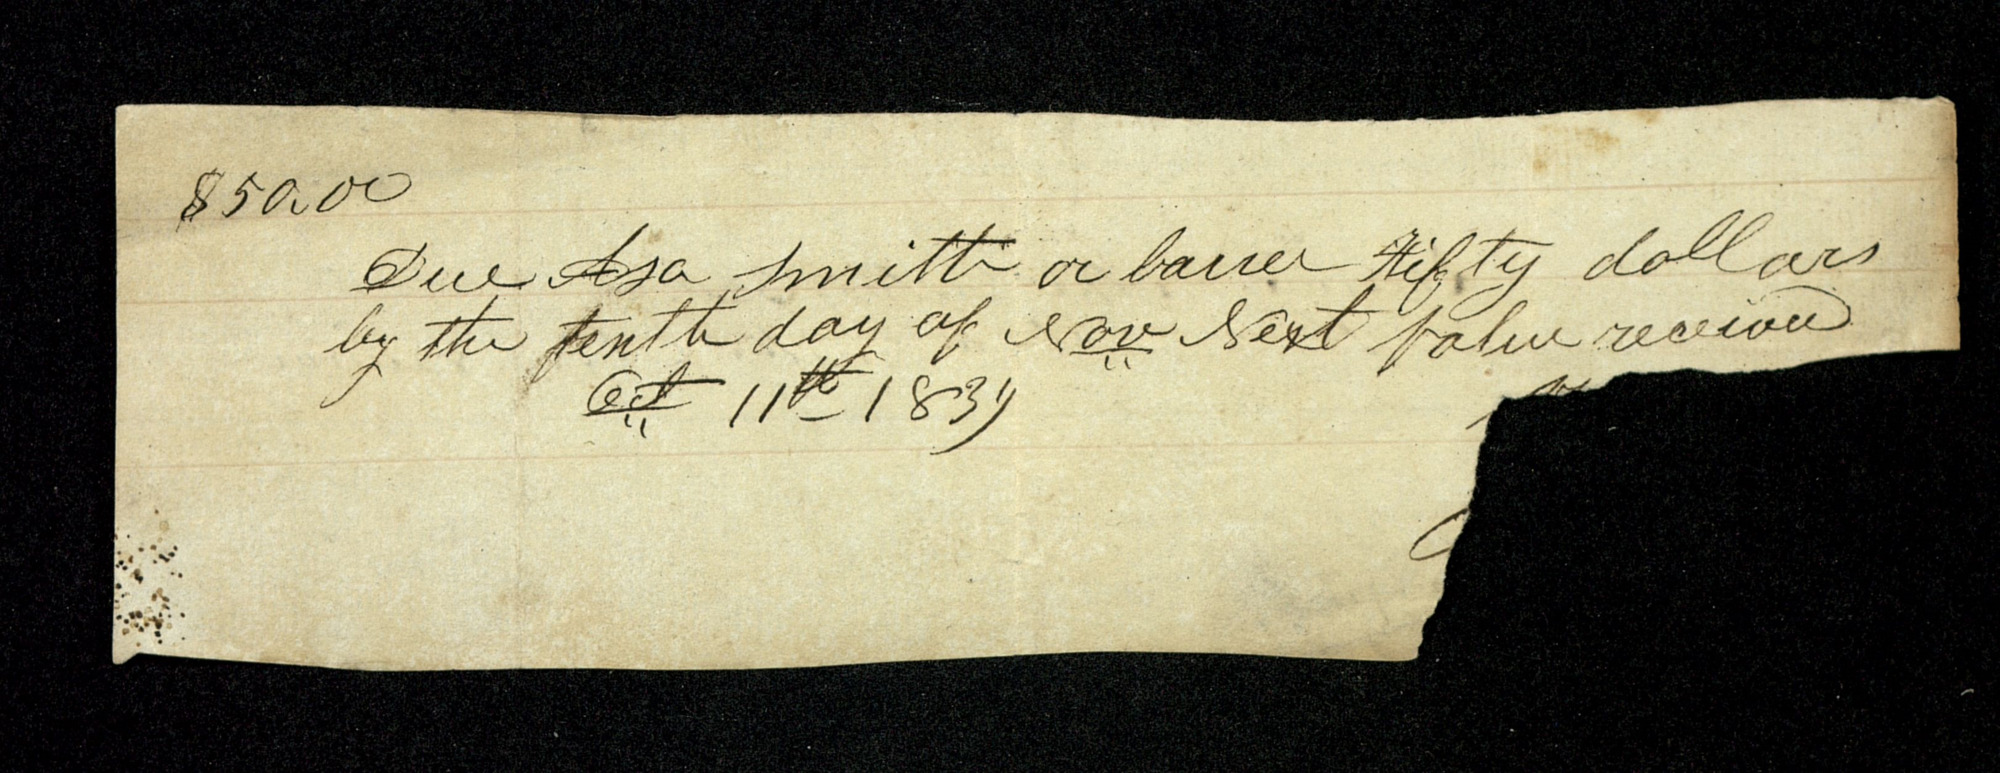 $50.00
Due Asa Smith or barrer Fifty dollars
by the tenth day of Nov Next value received
Oct 11th 1839